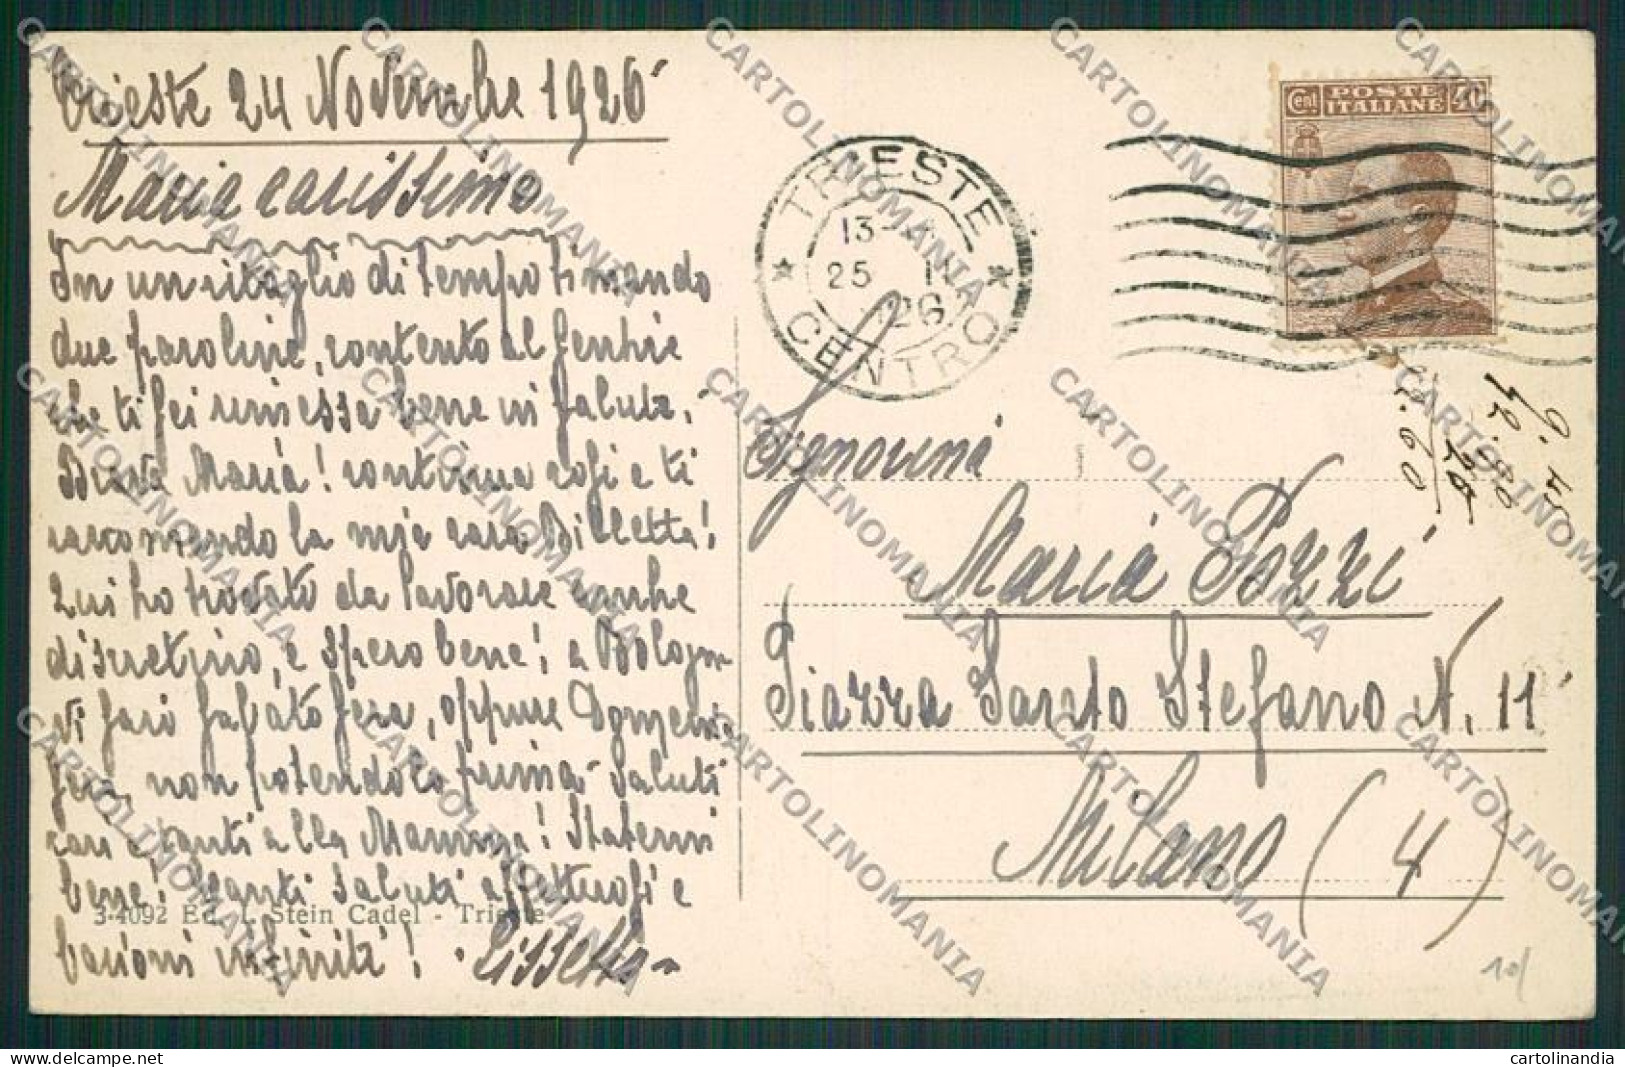 Trieste 24 Novembre 1926
Maria carissima
In un ritaglio di tempo ti mando
due paroline, contento al sentire
che ti sei rimessa bene in salute,
Maria! continua così e ti
raccomando la mia cara
Qui ho trovato da lavorare anche
discretino, e spero bene! a Bologna
vi sarò sabato sera, oppure Domeni.
sera, non potendolo prima Saluti
cari e tanti alla Mamma! Statemi
bene. Tanti saluti affettuosi e
bacioni infiniti!
3-4092 Ed. I. Stein Cadel - Trieste
TRIESTE
13
25 11
26
CENTRO
Cent POSTE 40
ITALIANE
Signorina
Maria Pozzi
Piazza Santo Stefano N. 11
Milano (4)
9.45
10/
CARTOLINOMANIA
delcampe.net
cartolinandia